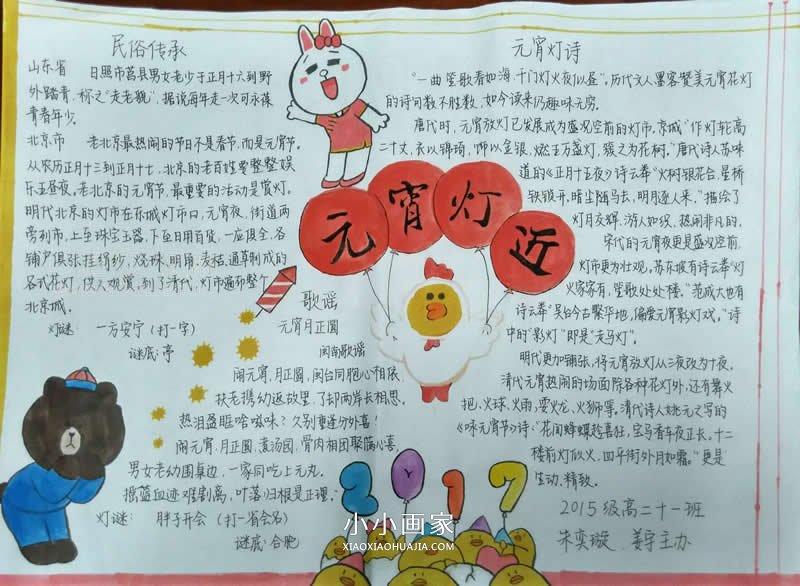 民俗传承
山东省 日照市莒县男女老少于正月十六到野
外踏青,称之"走老貌",据说每年走一次可永葆
青春年少。
北京市 老北京最热闹的节日不是春节,而是元宵节。
从农历正月十三到正月十七,北京的老百姓要整整娱
乐五昼夜。老北京的元宵节,最重要的活动是赏灯。
明代北京的灯市在东城灯市口,元宵夜,街道两
旁列市,上至珠宝玉器,下至日用百货,一应俱全。各
铺户俱张挂绢纱、烧珠、明角、麦秸、通草制成的
各式花灯,供人观赏,到了清代,灯市遍布整个
北京城。
灯谜: 一方安宁(打一字)
谜底:亭
歌谣
元宵月正圆
闽南歌谣
闹元宵,月正圆,闽台同胞心相依,
扶老携幼返故里,了却两岸长相思。
热泪盈眶啥滋味?久别重逢分外喜!
闹元宵,月正圆,煮汤园,骨肉相团聚满心喜,
男女老幼围桌边,一家同吃上元丸。
摇篮血迹难割离,叶落归根是正理。
灯谜: 胖子开会(打一省会名)
谜底:合肥
元宵灯近
元宵灯诗
"一曲笙歌春如海,千门灯火夜似昼",历代文人墨客赞美元宵花灯
的诗句数不胜数,如今读来仍趣味无穷。
唐代时,元宵放灯已发展成为盛况空前的灯市。京城"作灯轮高
二十丈,衣以锦绮,饰以金银,燃五万盏灯,簇之为花树。"唐代诗人苏味
道的《正月十五夜》诗云奉"火树银花合,星桥
铁锁开。暗尘随马去,明月逐人来。"描绘了
灯月交辉,游人如织,热闹非凡的。
宋代的元宵夜更是盛况空前,
灯市更为壮观。苏东坡有诗云奉"灯
火家家有,笙歌处处楼。"范成大也有
诗云奉"吴台今古繁华地,偏爱元宵影灯戏。"诗
中的"影灯"即是"走马灯"。
明代更加铺张,将元宵放灯从三夜改为十夜。
清代元宵热闹的场面除各种花灯外,还有舞火
把、火球、火雨,耍火龙、火狮等。清代诗人姚元之写的
《咏元宵节》诗:"花间蜂蝶趁喜狂,宝马香车夜正长。十二
楼前灯似火,四平街外月如霜。"更是
生动、精致。
2017
2015级高二十一班
朱奕璇 姜宇主办
小小画家
XIAOXIAOHUAJIA.COM